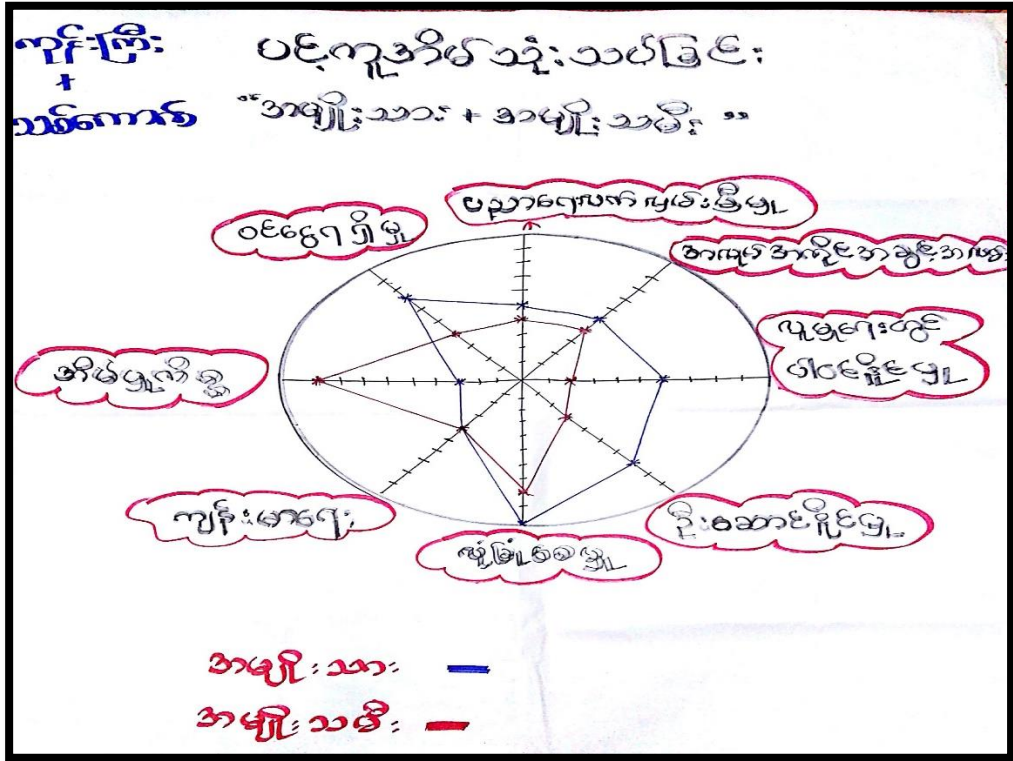 ကုန်းကြီး
+
သစ်ကောက်
ပင့်ကူအိမ်သုံးသပ်ခြင်း
"အမျိုးသား + အမျိုးသမီး"
ပညာရေးလက်လှမ်းမီမှု
ဝင်ငွေရရှိမှု
အလုပ်အကိုင်အခွင့်အလမ်း
လူမှုရေးတွင်
ပါဝင်နိုင်မှု
အိမ်မှုကိစ္စ
ကျန်းမာရေး
ဦးဆောင်နိုင်မှု
လုံခြုံစေမှု
အမျိုးသား
အမျိုးသမီး